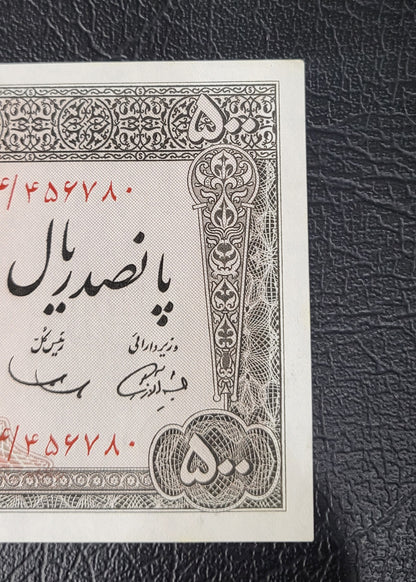 ۵۰۰
۴/۴۵۶۷۸۰
پانصد ریال
وزیر دارائی
رئیس کل
۴/۴۵۶۷۸۰
۵۰۰